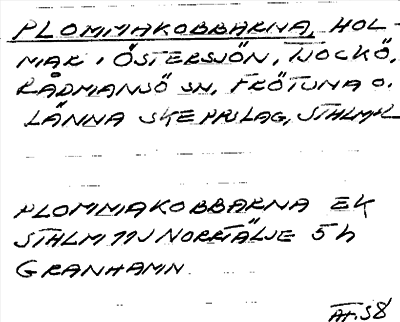 PLOMMAKOBBARNA, HOL-
MAR I ÖSTERSJÖN, TJOCKÖ,
RÅDMANSÖ SN, FRÖTUNA O.
LÄNNA SKEPPSLAG, STHLMSL
PLOMMAKOBBARNA EK
STHLM 11J NORRTÄLJE 5h
GRANHAMN
AT.S8